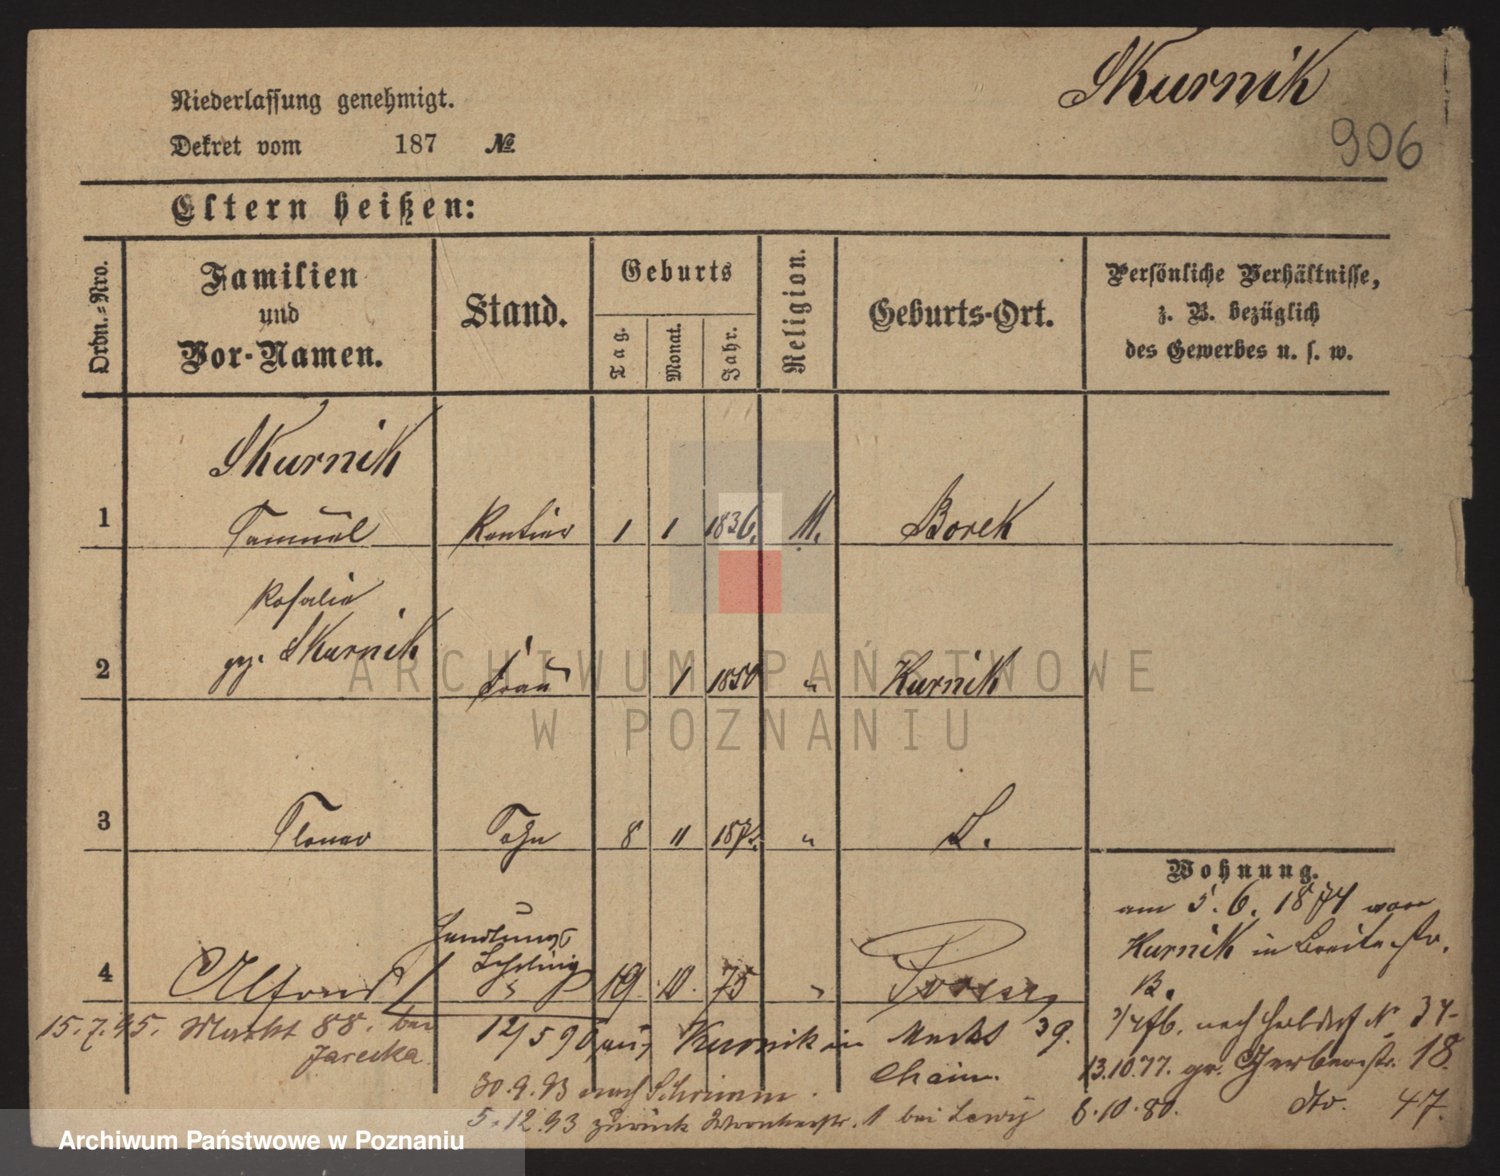 Skurnik
906
Niederlassung genehmigt.
Dekret vom 187 №
Eltern heißen:
Ordn.-Nro.
Familien
und
Vor-Namen.
Stand.
Geburts
Tag.
Monat.
Jahr.
Religion.
Geburts-Ort.
Persönliche Verhältnisse,
z. B. bezüglich
des Gewerbes u. s. w.
Skurnik
1 Samuel Rentier 1 1 1836. M. Borek
Rosalie
2 gb. Skurnik Frau 1 1850 " Kurnik
3 Sohn 8 11 " L.
Wohnung.
am 5. 6. 1874 von
Kurnik in Breitestr.
Handlungs
Lehrling
4 Alfred 19. 10. 75 " Posen
nach Halbdorf № 34
15. 7. 95. Markt 88. bei
Jarecka
12/5 90 aus Kurnik in Markt 39.
Chaim.
13.10.77. gr. Gerberstr. 18.
30.9.93 nach Schrimm.
5.12.93 zurück Wronkerstr. 1 bei Lewy
6.10.80. do. 47.
ARCHIWUM PAŃSTWOWE
W POZNANIU
Archiwum Państwowe w Poznaniu